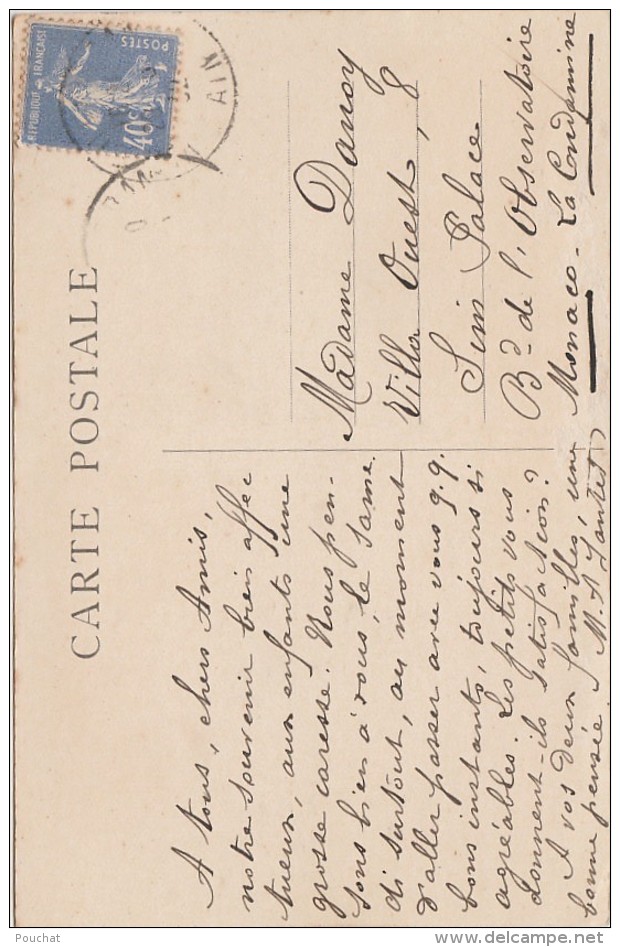 CARTE POSTALE
A tous, chers Amis,
notre souvenir bien affec
tueux, aux enfants une
grosse caresse. Nous pen-
sons bien à vous, le Same.
di surtout, au moment
d'aller passer avec vous q.q.
bons instants, toujours si
agréables. Les petits vous
donnent-ils satisfaction?
A vos deux familles, une
bonne pensée. M. A
REPUBLIQUE FRANÇAISE
POSTES
40c
AIN
Madame Danoy
Villa Ouest, 8
Sim Palace
Bd de l'Observatoire
Monaco - La Condamine
Pouchat
www.delcampe.net